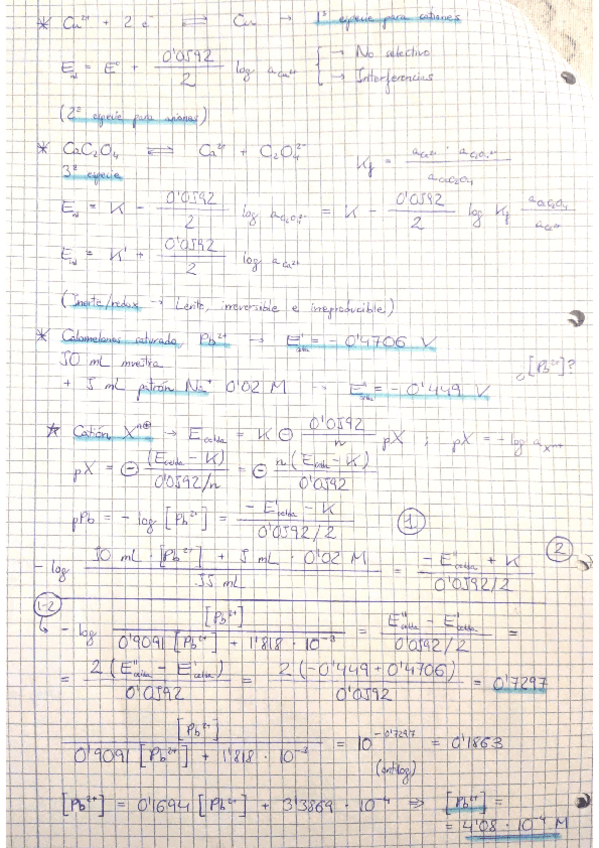 * Cu²⁺ + 2 e⁻ ⇌ Cu → 1ª especie para cationes
E_ind = E° + 0'0592/2 log a_Cu²⁺ { → No selectivo
→ Interferencias
(2ª especie para aniones)
* CaC₂O₄ ⇌ Ca²⁺ + C₂O₄²⁻ K_f = a_Ca²⁺ · a_C₂O₄²⁻ / a_CaC₂O₄
3ª especie
E_ind = K - 0'0592/2 log a_C₂O₄²⁻ = K - 0'0592/2 log K_f a_CaC₂O₄/a_Ca²⁺
E_ind = K' + 0'0592/2 log a_Ca²⁺
(Inerte/redox → Lento, irreversible e irreproducible)
* Calomelanos saturado, Pb²⁺ → E'celda = - 0'4706 V
50 mL muestra
¿[Pb²⁺]?
+ 5 mL patrón 0'02 M → E''celda = - 0'449 V
* Catión Xⁿ⊕ → Ecelda = K ⊖ 0'0592/n pX ; pX = - log a_Xⁿ⁺
pX = ⊖ (Ecelda - K)/0'0592/n = ⊖ n(Ecelda - K)/0'0592
pPb = - log [Pb²⁺] = - E'celda - K / 0'0592/2 ①
- log 50 mL · [Pb²⁺] + 5 mL · 0'02 M / 55 mL = - E''celda + K / 0'0592/2 ②
①-②
↳ - log [Pb²⁺] / 0'9091 [Pb²⁺] + 1'818 · 10⁻³ = E''celda - E'celda / 0'0592/2 =
= 2 (E''celda - E'celda) / 0'0592 = 2 (-0'449 + 0'4706) / 0'0592 = 0'7297
[Pb²⁺] / 0'9091 [Pb²⁺] + 1'818 · 10⁻³ = 10^-0'7297 = 0'1863
(antilog)
[Pb²⁺] = 0'1694 [Pb²⁺] + 3'3869 · 10⁻⁴ ⇒ [Pb²⁺] =
= 4'08 · 10⁻⁴ M